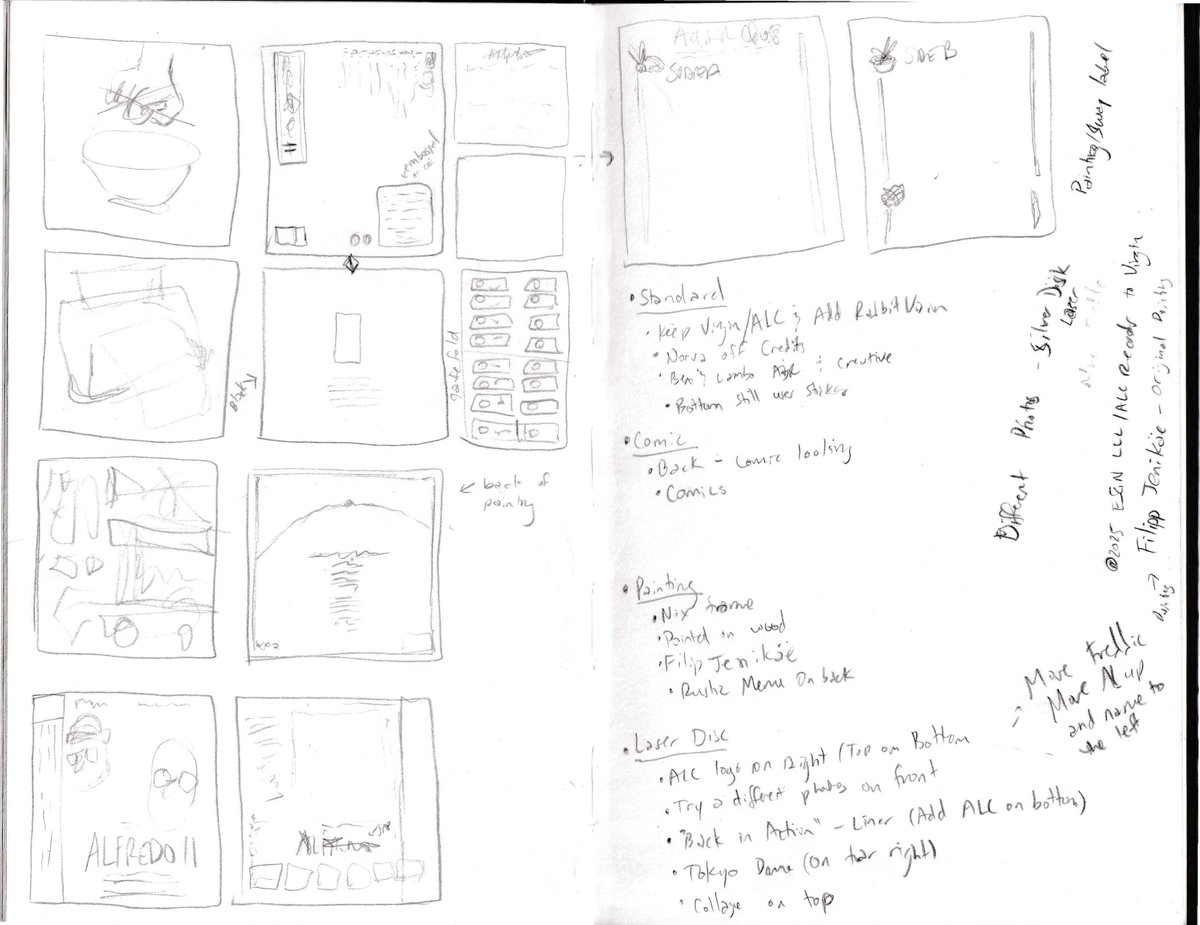 embossed
Black
gatefold
back of
painting
ALFREDO II
SIDE A
SIDE B
Painting/Swing label
• Standard
• Keep Virgin/ALC & Add Rabbit Vision
• Norva off Credits
• Ben & Lambo & Creative
• Bottom still use sticker
• Comic
• Back - Comic looking
• Comics
• Painting
• Nix frame
• Painted on wood
• Filip Jenikäe
• Rustic Menu On back
• Laser Disc
• ALC logo on right (Top on Bottom
• Try a different photos on front
• "Back in Action" - Liner (Add ALC on bottom)
• Tokyo Dome (On far right)
• Collage on top
Move Freddie
Move Al up
and name to
the left
Different Photos - Silver Disk
Laser
©2025 ESGN LLC/ALC Records to Virgin
→ Filipp Jenikäe - Original Painting